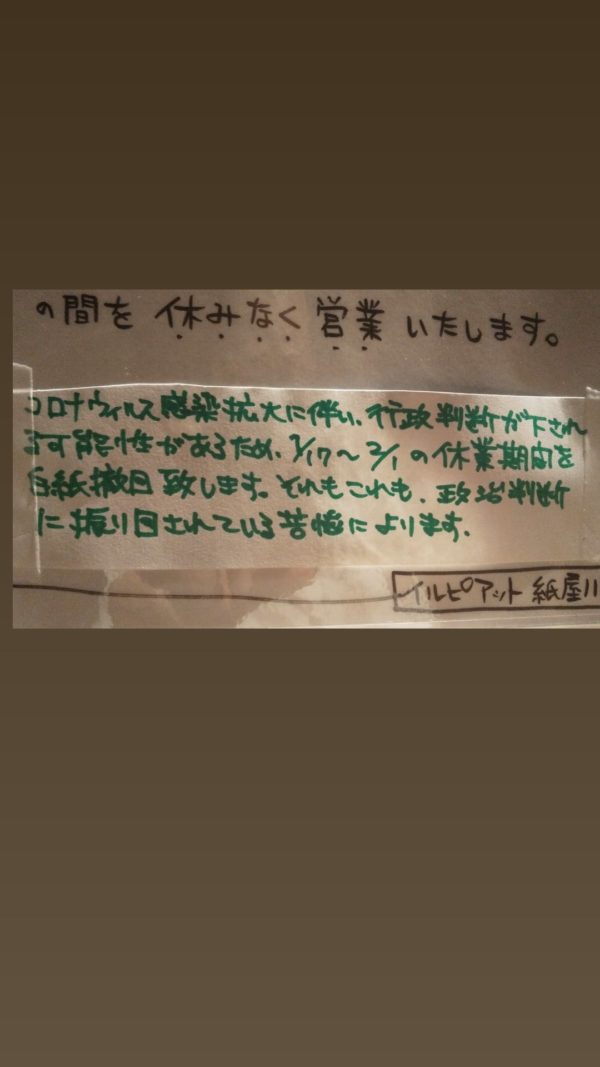 の間を 休みなく 営業 いたします。
コロナウィルス感染拡大に伴い、行政判断が下され
る可能性があるため、1/17〜2/1の休業期間を
白紙撤回致します。それもこれも、政治判断
に振り回されている苦悩によります.
イルピアット 紙屋川